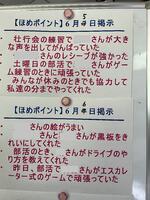 【ほめポイント】6月 日掲示
壮行会の練習で さんが大き
な声を出してがんばっていた
さんのレシーブが強かった
土曜日の部活で さんがゲー
ム練習のときに頑張っていた
みんなが休みのときでも協力して
私達の分までやってくれた
【ほめポイント】6月 日掲示
さんの絵がうまい
さんと さんが黒板をき
れいにしてくれた
部活のとき、 さんがドライブのや
り方を教えてくれた
昨日、部活で さんがエスカレ
ーター式のゲームで頑張っていた